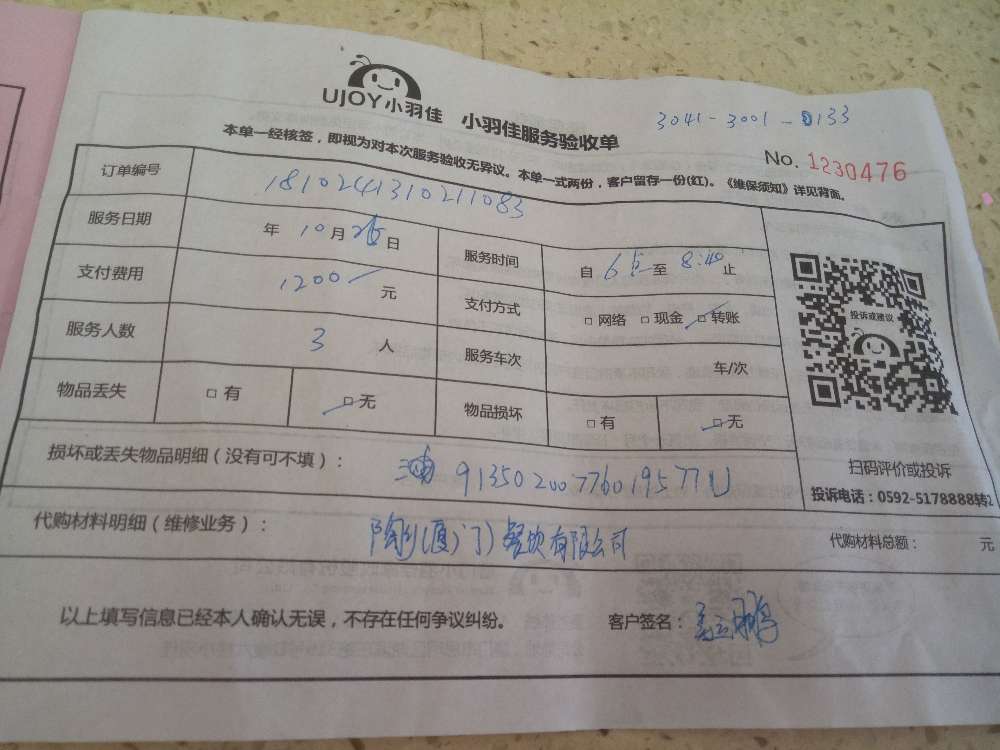 UJOY小羽佳 小羽佳服务验收单
3041-3001-0133
No. 1230476
本单一经核签，即视为对本次服务验收无异议。本单一式两份，客户留存一份(红)。《维保须知》详见背面。
订单编号 1810241310211083
服务日期 年 10 月 26 日 服务时间 自 6点 至 8:40 止
支付费用 1200 元 支付方式 □网络 □现金 ☑转账
服务人数 3 人 服务车次 车/次
物品丢失 □有 ☑无 物品损坏 □有 ☑无
投诉或建议
扫码评价或投诉
投诉电话：0592-5178888转2
损坏或丢失物品明细（没有可不填）： 91350200776019577U
代购材料明细（维修业务）： (厦门)餐饮有限公司 代购材料总额： 元
以上填写信息已经本人确认无误，不存在任何争议纠纷。 客户签名：